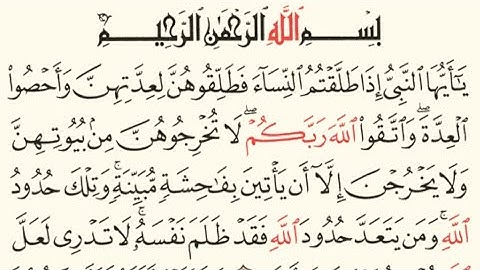 بِسْمِ ٱللَّهِ ٱلرَّحْمَٰنِ ٱلرَّحِيمِ
يَٰٓأَيُّهَا ٱلنَّبِيُّ إِذَا طَلَّقْتُمُ ٱلنِّسَآءَ فَطَلِّقُوهُنَّ لِعِدَّتِهِنَّ وَأَحْصُوا۟
ٱلْعِدَّةَ ۖ وَٱتَّقُوا۟ ٱللَّهَ رَبَّكُمْ ۖ لَا تُخْرِجُوهُنَّ مِنۢ بُيُوتِهِنَّ
وَلَا يَخْرُجْنَ إِلَّآ أَن يَأْتِينَ بِفَٰحِشَةٍ مُّبَيِّنَةٍ ۚ وَتِلْكَ حُدُودُ
ٱللَّهِ ۚ وَمَن يَتَعَدَّ حُدُودَ ٱللَّهِ فَقَدْ ظَلَمَ نَفْسَهُۥ ۚ لَا تَدْرِى لَعَلَّ